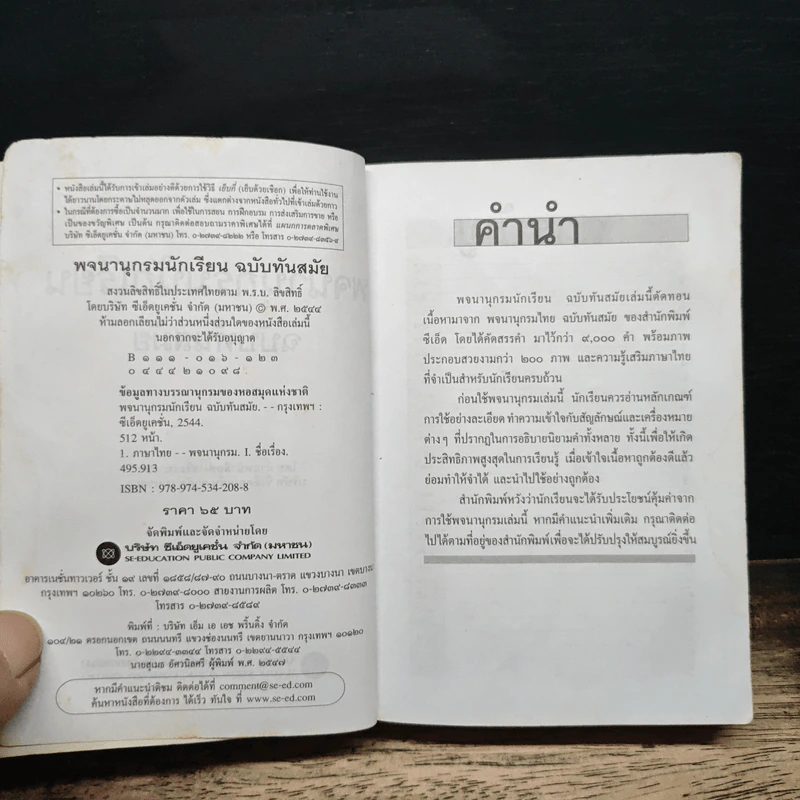 • หนังสือเล่มนี้ได้รับการเข้าเล่มอย่างดีด้วยการใช้วิธี เย็บกี่ (เย็บด้วยเชือก) เพื่อให้ท่านใช้งาน
ได้ยาวนานโดยกระดาษไม่หลุดออกจากตัวเล่ม ซึ่งแตกต่างจากหนังสือทั่วไปที่เข้าเล่มด้วยกาว
• ในกรณีที่ต้องการซื้อเป็นจำนวนมาก เพื่อใช้ในการสอน การฝึกอบรม การส่งเสริมการขาย หรือ
เป็นของขวัญพิเศษ เป็นต้น กรุณาติดต่อสอบถามราคาพิเศษได้ที่ แผนกการตลาดพิเศษ
บริษัท ซีเอ็ดยูเคชั่น จำกัด (มหาชน) โทร. ๐-๒๗๓๙-๘๒๒๒ หรือ โทรสาร ๐-๒๗๓๙-๘๓๕๖-๙
พจนานุกรมนักเรียน ฉบับทันสมัย
สงวนลิขสิทธิ์ในประเทศไทยตาม พ.ร.บ. ลิขสิทธิ์
โดยบริษัท ซีเอ็ดยูเคชั่น จำกัด (มหาชน) © พ.ศ. ๒๕๔๔
ห้ามลอกเลียนไม่ว่าส่วนหนึ่งส่วนใดของหนังสือเล่มนี้
นอกจากจะได้รับอนุญาต
B ๑ ๑ ๑ - ๐ ๑ ๖ - ๑ ๒ ๓
๐ ๔ ๔ ๔ ๒ ๑ ๐ ๙ ๘
ข้อมูลทางบรรณานุกรมของหอสมุดแห่งชาติ
พจนานุกรมนักเรียน ฉบับทันสมัย. - - กรุงเทพฯ :
ซีเอ็ดยูเคชั่น, 2544.
512 หน้า.
1. ภาษาไทย - - พจนานุกรม. I. ชื่อเรื่อง.
495.913
ISBN : 978-974-534-208-8
ราคา ๖๕ บาท
จัดพิมพ์และจัดจำหน่ายโดย
บริษัท ซีเอ็ดยูเคชั่น จำกัด (มหาชน)
SE-EDUCATION PUBLIC COMPANY LIMITED
อาคารเนชั่นทาวเวอร์ ชั้น ๑๙ เลขที่ ๑๘๕๘/๘๗-๙๐ ถนนบางนา-ตราด แขวงบางนา เขตบางนา
กรุงเทพฯ ๑๐๒๖๐ โทร. ๐-๒๗๓๙-๘๐๐๐ สายงานการผลิต โทร. ๐-๒๗๓๙-๘๓๓๓
โทรสาร ๐-๒๗๓๙-๘๕๘๙
พิมพ์ที่ : บริษัท เอ็ม เอ เอช พริ้นติ้ง จำกัด
๑๐๔/๒๑ ตรอกนอกเขต ถนนนนทรี แขวงช่องนนทรี เขตยานนาวา กรุงเทพฯ ๑๐๑๒๐
โทร. ๐-๒๒๙๔-๓๓๔๔ โทรสาร ๐-๒๒๙๔-๕๕๔๔
นายสุเมธ อัศวนิลศรี ผู้พิมพ์ พ.ศ. ๒๕๔๗
หากมีคำแนะนำติชม ติดต่อได้ที่ comment@se-ed.com
ค้นหาหนังสือที่ต้องการ ได้เร็ว ทันใจ ที่ www.se-ed.com
คำนำ
พจนานุกรมนักเรียน ฉบับทันสมัยเล่มนี้ตัดทอน
เนื้อหามาจาก พจนานุกรมไทย ฉบับทันสมัย ของสำนักพิมพ์
ซีเอ็ด โดยได้คัดสรรคำ มาไว้กว่า ๙,๐๐๐ คำ พร้อมภาพ
ประกอบสวยงามกว่า ๒๐๐ ภาพ และความรู้เสริมภาษาไทย
ที่จำเป็นสำหรับนักเรียนครบถ้วน
ก่อนใช้พจนานุกรมเล่มนี้ นักเรียนควรอ่านหลักเกณฑ์
การใช้อย่างละเอียด ทำความเข้าใจกับสัญลักษณ์และเครื่องหมาย
ต่างๆ ที่ปรากฏในการอธิบายนิยามคำทั้งหลาย ทั้งนี้เพื่อให้เกิด
ประสิทธิภาพสูงสุดในการเรียนรู้ เมื่อเข้าใจเนื้อหาถูกต้องดีแล้ว
ย่อมทำให้จำได้ และนำไปใช้อย่างถูกต้อง
สำนักพิมพ์หวังว่านักเรียนจะได้รับประโยชน์คุ้มค่าจาก
การใช้พจนานุกรมเล่มนี้ หากมีคำแนะนำเพิ่มเติม กรุณาติดต่อ
ไปได้ตามที่อยู่ของสำนักพิมพ์เพื่อจะได้ปรับปรุงให้สมบูรณ์ยิ่งขึ้น